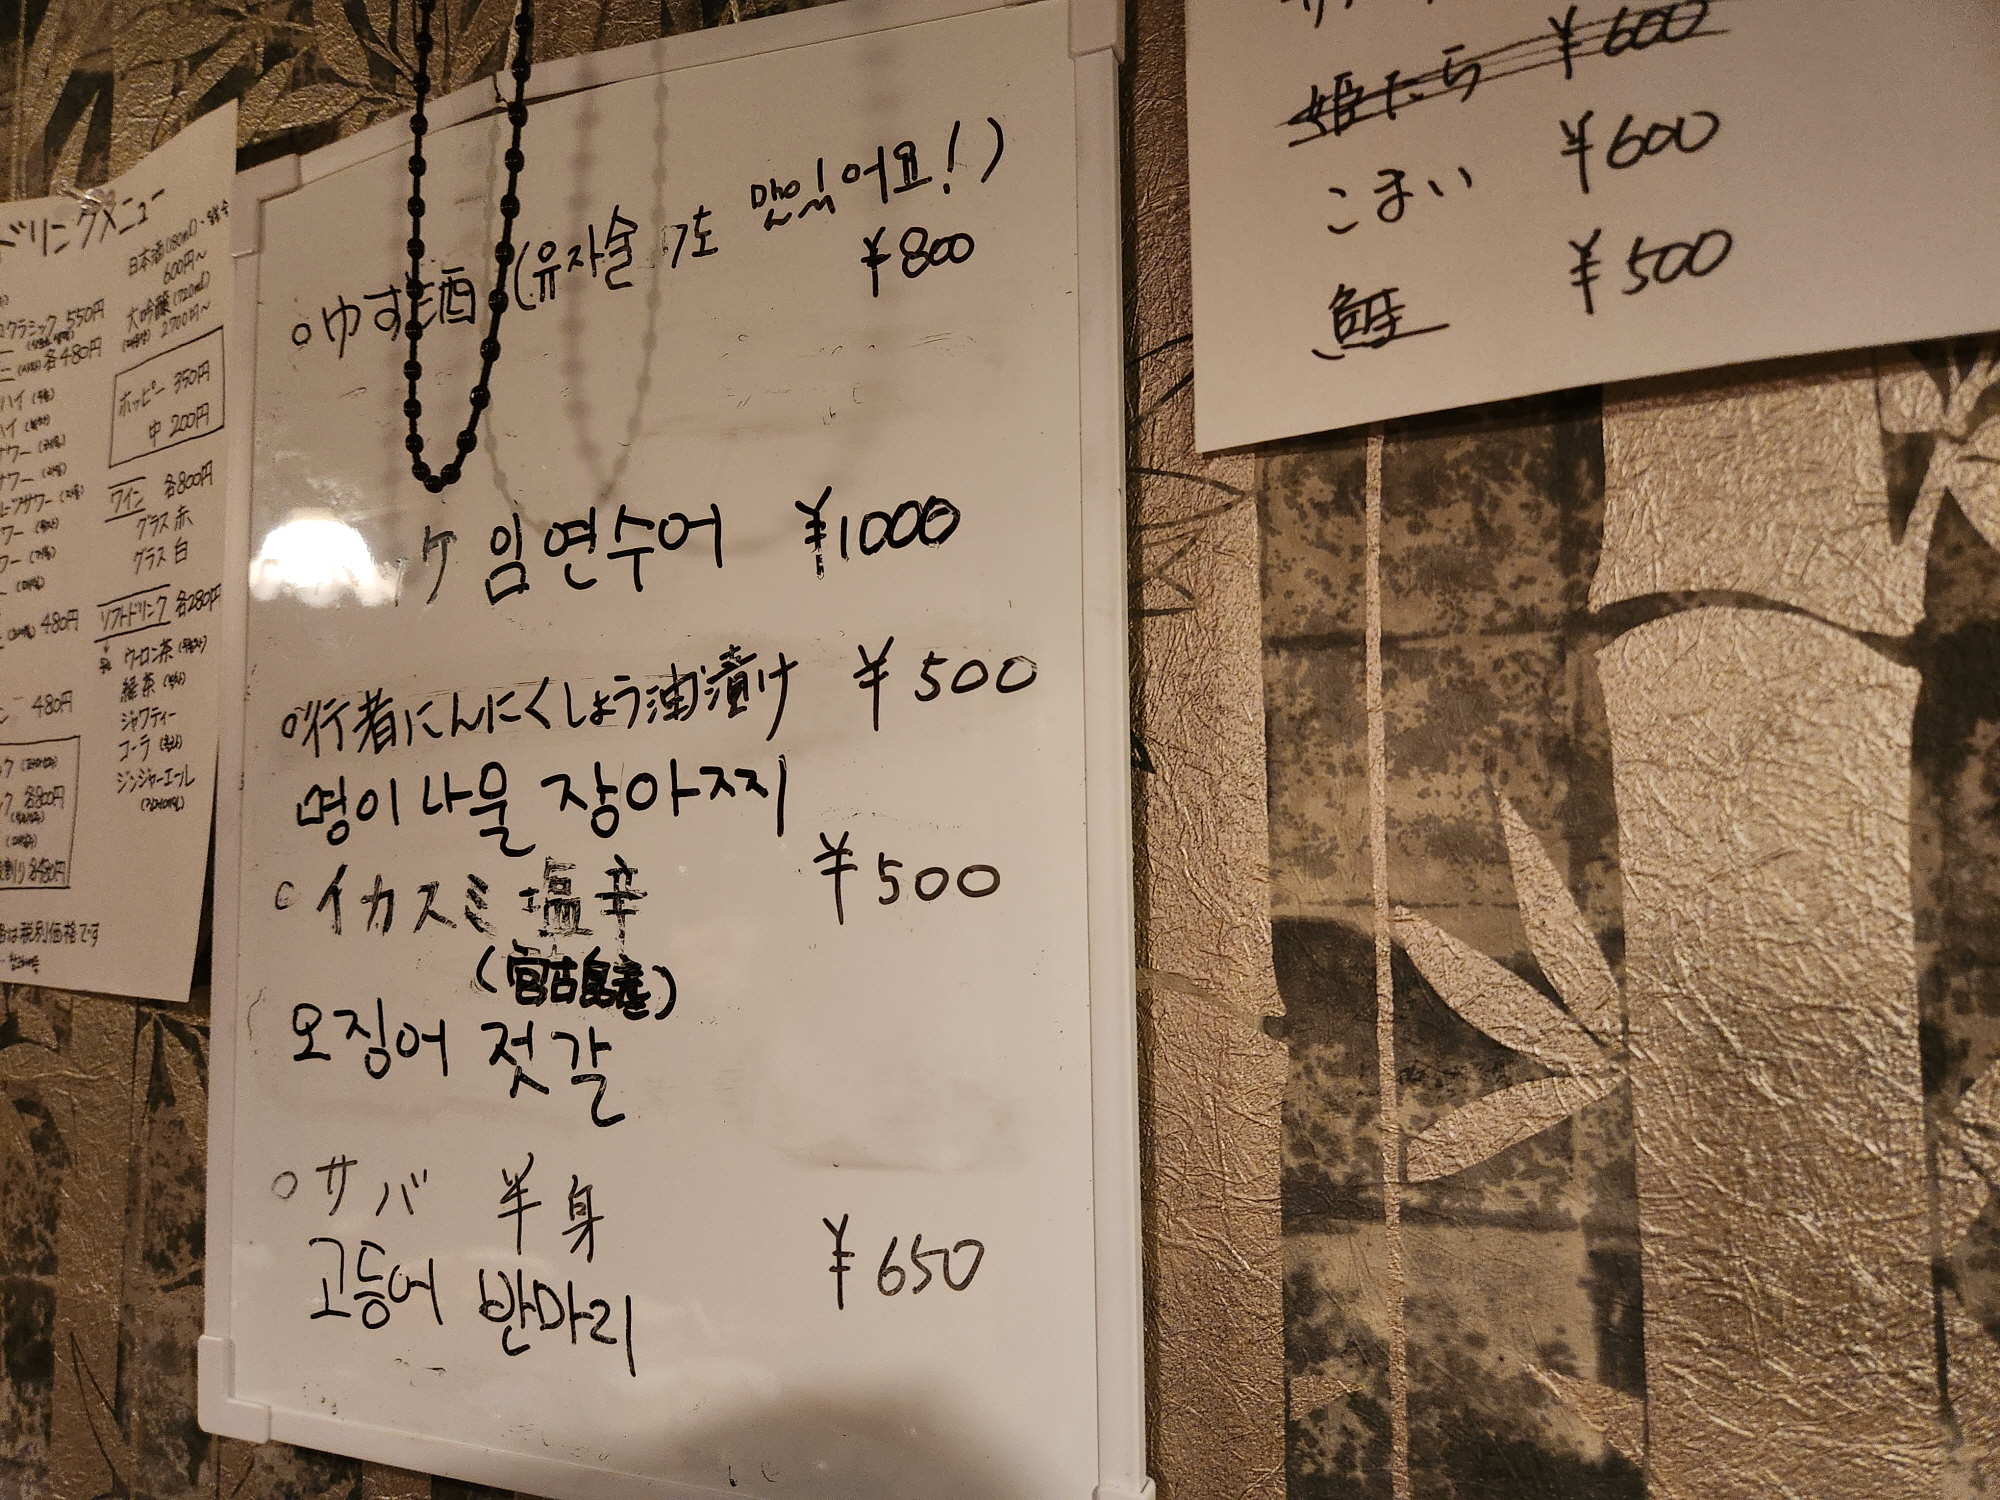 ドリンクメニュー
日本酒(180ml)
600円〜
大吟醸(720ml)
2700円〜
クラシック 550円
各480円
ハイ
ハイ
サワー
サワー
サワー
480円
480円
ホッピー 350円
中 200円
ワイン 各800円
グラス 赤
グラス 白
ソフトドリンク 各280円
ウーロン茶
緑茶
ジャワティー
コーラ
ジンジャーエール
各800円
割り 各480円
は税別価格です
○ゆず酒 (유자술 맛있어요!)
¥800
ケ 임연수어 ¥1000
○行者にんにくしょう油漬け ¥500
명이나물 장아찌
○イカスミ塩辛 ¥500
(宮古島産)
오징어 젓갈
○サバ 半身
고등어 반마리 ¥650
姫たら ¥600
こまい ¥600
鮭 ¥500